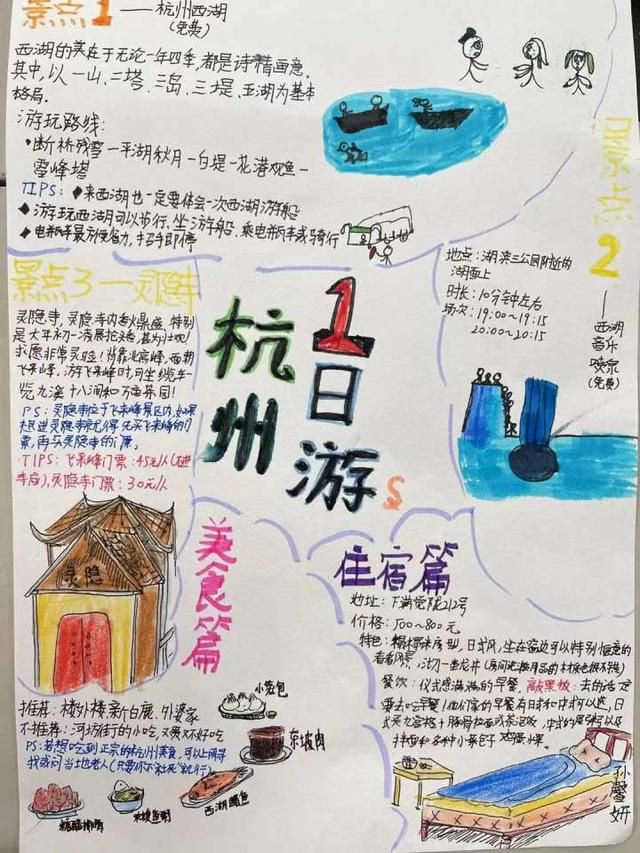 景点1——杭州西湖
(免费)
西湖的美在于无论一年四季,都是诗情画意.
其中,以一山、二塔、三岛、三堤、五湖为基本
格局.
游玩路线:
·断桥残雪一平湖秋月一白堤一花港观鱼一
雷峰塔
TIPS:◆来西湖也一定要体会一次西湖游船
◆游玩西湖可以步行、坐游船、乘电瓶车或骑行
◆电瓶车最方便省力,招手即停
景点2——西湖
音乐
喷泉
(免费)
地点:湖滨三公园附近的
湖面上
时长:10分钟左右
场次:19:00~19:15
20:00~20:15
景点3一灵隐寺
灵隐寺,灵隐寺内香火鼎盛,特别
是大年初一
求愿非常灵验!背靠北高峰,面朝
飞来峰,游飞来峰时可坐缆车一
览九溪十八涧和万亩茶园!
PS:灵隐寺位于飞来峰景区内,如果
想进灵隐寺就先得先买飞来峰的门
票,再买灵隐寺的门票.
TIPS:飞来峰门票:45元/人(不进
寺庙),灵隐寺门票:30元/人
灵隐
杭州
1日游
美食篇
推荐:楼外楼、新白鹿、外婆家
不推荐:河坊街的小吃,又贵又不好吃
PS:若想吃到正宗的杭州美食,可以上网寻
找或问当地老人(只要你不社死就行)
小笼包
东坡肉
西湖醋鱼
糖醋排骨
住宿篇
地址:下满觉陇212号
价格:500~800元
特色:榻榻米房型,日式风,坐在窗边可以特别惬意的
看看风景,
餐饮:仪式感满满的早餐,敲黑板:去的话一定
要去吃早餐!他们家的早餐有日式和中式可以选,日
式是九宫格+豚骨拉面或茶泡饭,
拌面和各种小菜包子
孙馨妍